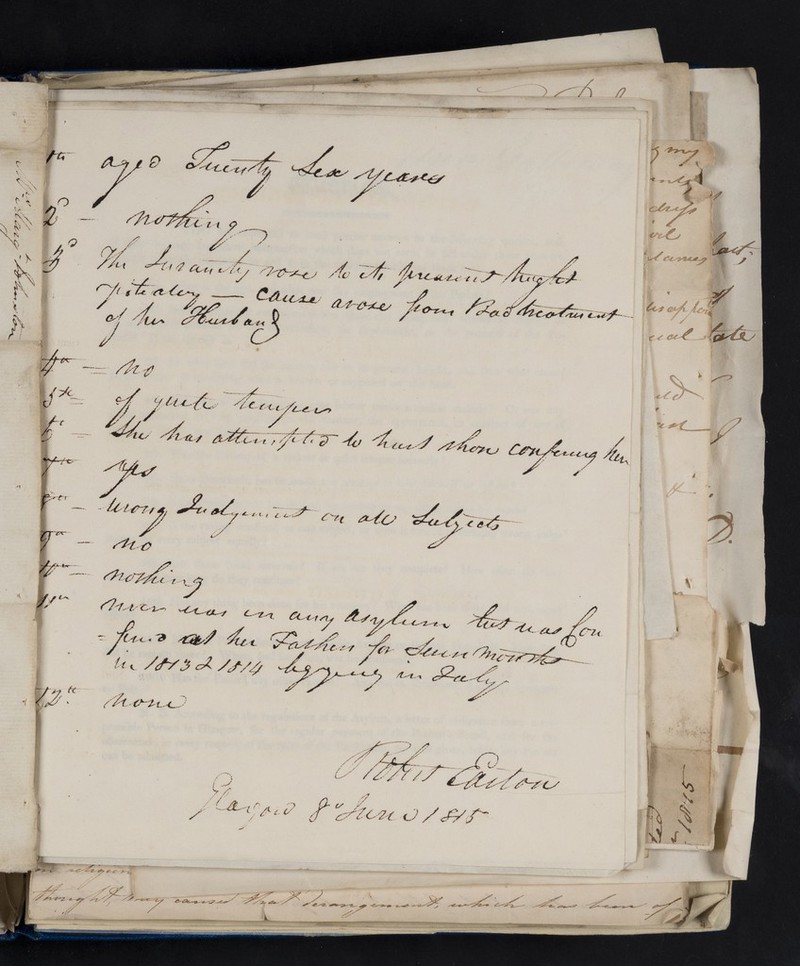 1th aged Twenty Sex years
2d - nothing
3d The Insanety rose to its present hught
- cause arose from Bad treatment
of her Husband
4th - no
5th - of quite temper
6th - She has attempted to hurt those confining her
7th yes
8th - wrong Judgement on all Subjects
9th - no
10th - nothing
11th never was in any asylum but was Con
= fined at her Fathers for Seven Months
in 1813 & 1814 begging in July
12th none
Robert Easton
Glasgow 8th June 1815
Mrs Marg Johnston
thought, may caused that derangement, which has been of
1815